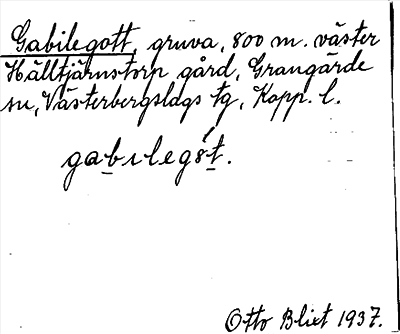 Gabilegott, gruva, 800 m. väster
Hälltjärnstorp gård, Grangärde
sn, Västerbergslags tg, Kopp. l.
gabilegåt.
Otto Blixt 1937.